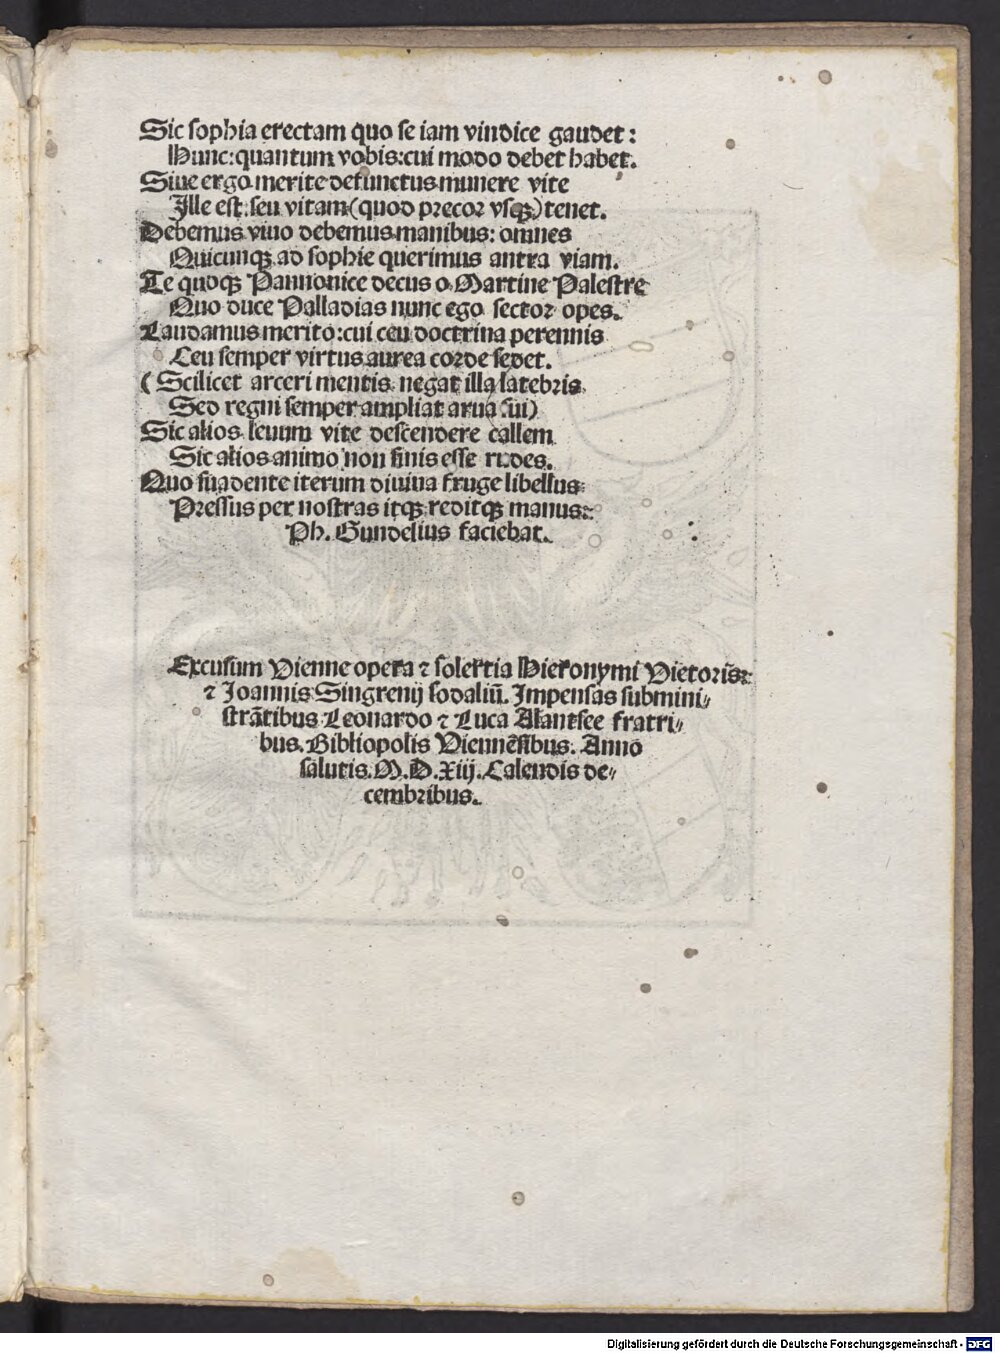 Sic sophia erectam quo se iam vindice gaudet:
Hunc: quantum vobis: cui modo debet habet.
Siue ergo merite defunctus munere vite
Ille est: seu vitam (quod precor vsqꝫ) tenet.
Debemus viuo debemus manibus: omnes
Quicunqꝫ ad sophie querimus antra viam.
Te quoqꝫ Pannonice decus o Martine Palestre
Quo duce Palladias nunc ego sector opes.
Laudamus merito: cui ceu doctrina perennis
Ceu semper virtus aurea corde sedet.
(Scilicet arceri mentis negat illa latebris
Sed regni semper ampliat arua sui)
Sic alios leuum vite descendere callem
Sic alios animo non sinis esse rudes.
Quo suadente iterum diuina fruge libellus
Pressus per nostras itqꝫ reditqꝫ manus:
Ph. Gundelius faciebat.
Excusum Vienne opera ⁊ solertia Hieronymi Vietoris:
⁊ Joannis Singrenij sodaliū. Impensas submini⸗
strātibus Leonardo ⁊ Luca Alantsee fratri⸗
bus. Bibliopolis Viennēsibus. Anno
salutis. M.D.Xiij. Calendis de⸗
cembribus.
Digitalisierung gefördert durch die Deutsche Forschungsgemeinschaft - DFG